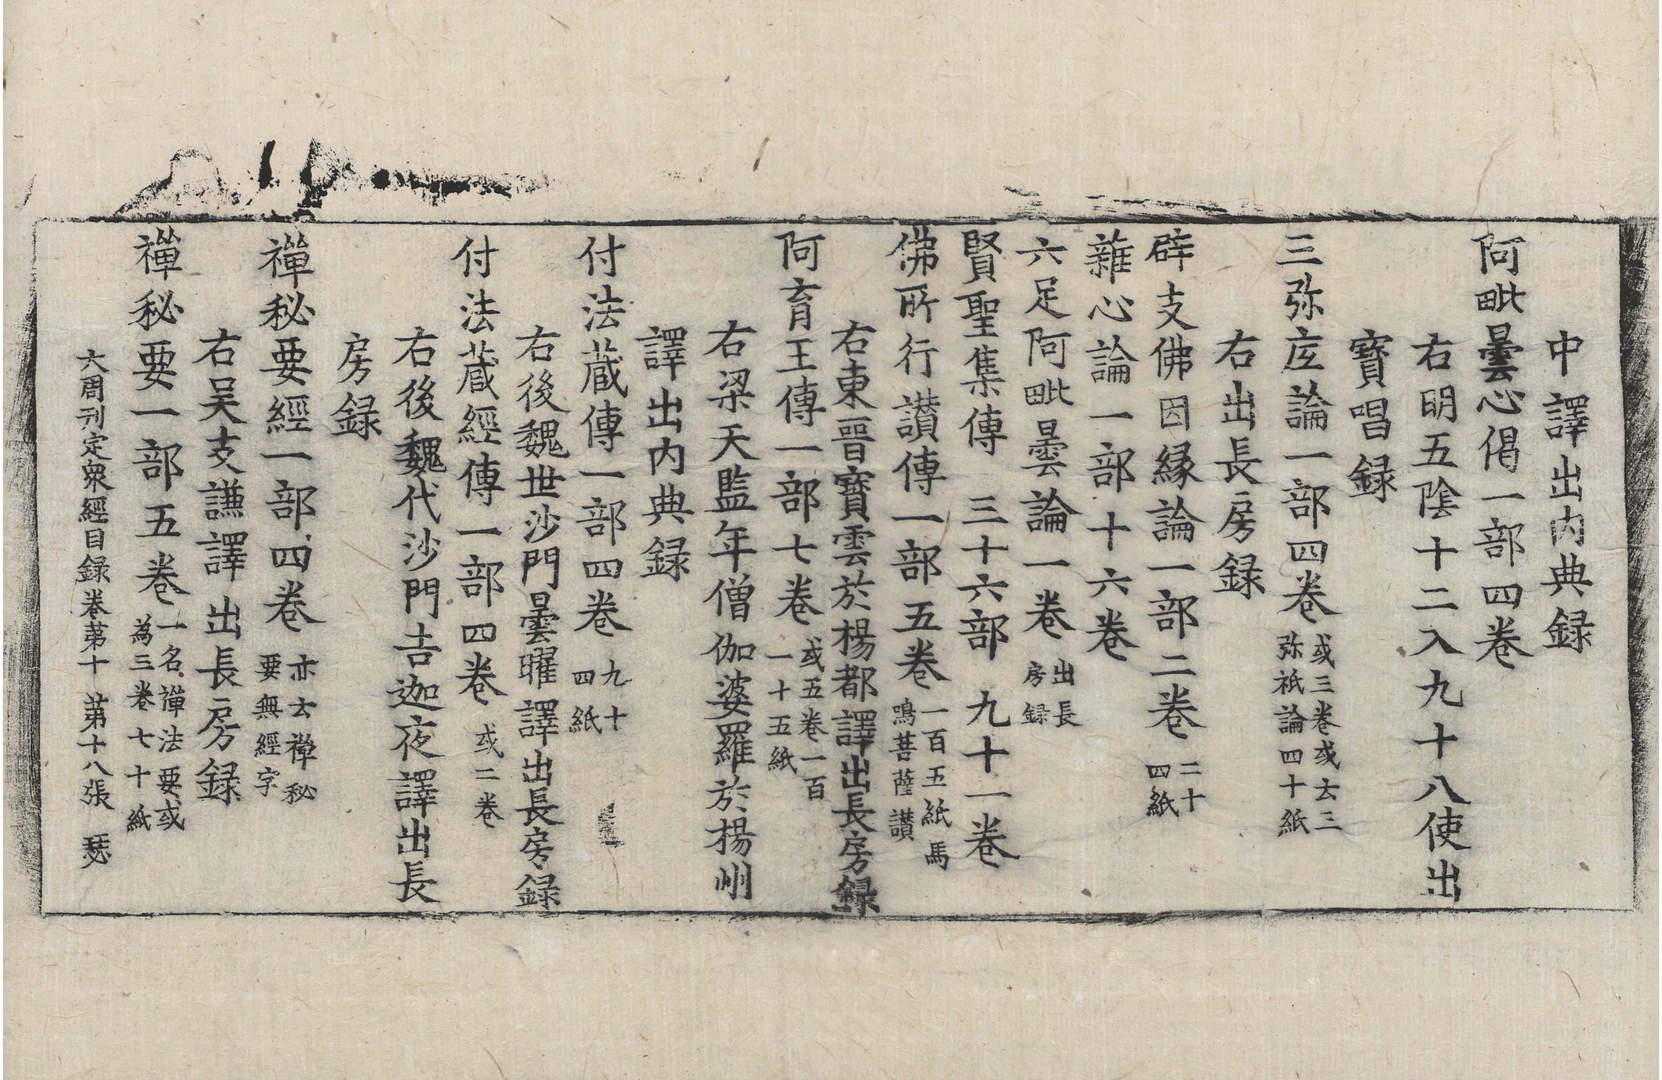 中譯出內典録
阿毗曇心偈一部四卷
右明五陰十二入九十八使出
寶唱録
三弥底論一部四卷 或三卷或云三弥祇論四十紙
右出長房録
辟支佛因縁論一部二卷 二十四紙
雜心論一部十六卷
六足阿毗曇論一卷 出長房録
賢聖集傳 三十六部 九十一卷
佛所行讃傳一部五卷 一百五紙馬鳴菩薩讃
右東晉寶雲於楊都譯出長房録
阿育王傳一部七卷 或五卷一百一十五紙
右梁天監年僧伽婆羅於楊州
譯出內典録
付法蔵傳一部四卷 九十四紙
右後魏世沙門曇曜譯出長房録
付法蔵經傳一部四卷 或二卷
右後魏代沙門吉迦夜譯出長
房録
禪秘要經一部四卷 亦云禪秘要無經字
右吴支謙譯出長房録
禪秘要一部五卷 一名禪法要或為三卷七十紙
大周刊定衆經目録卷苐十 苐十八張 瑟